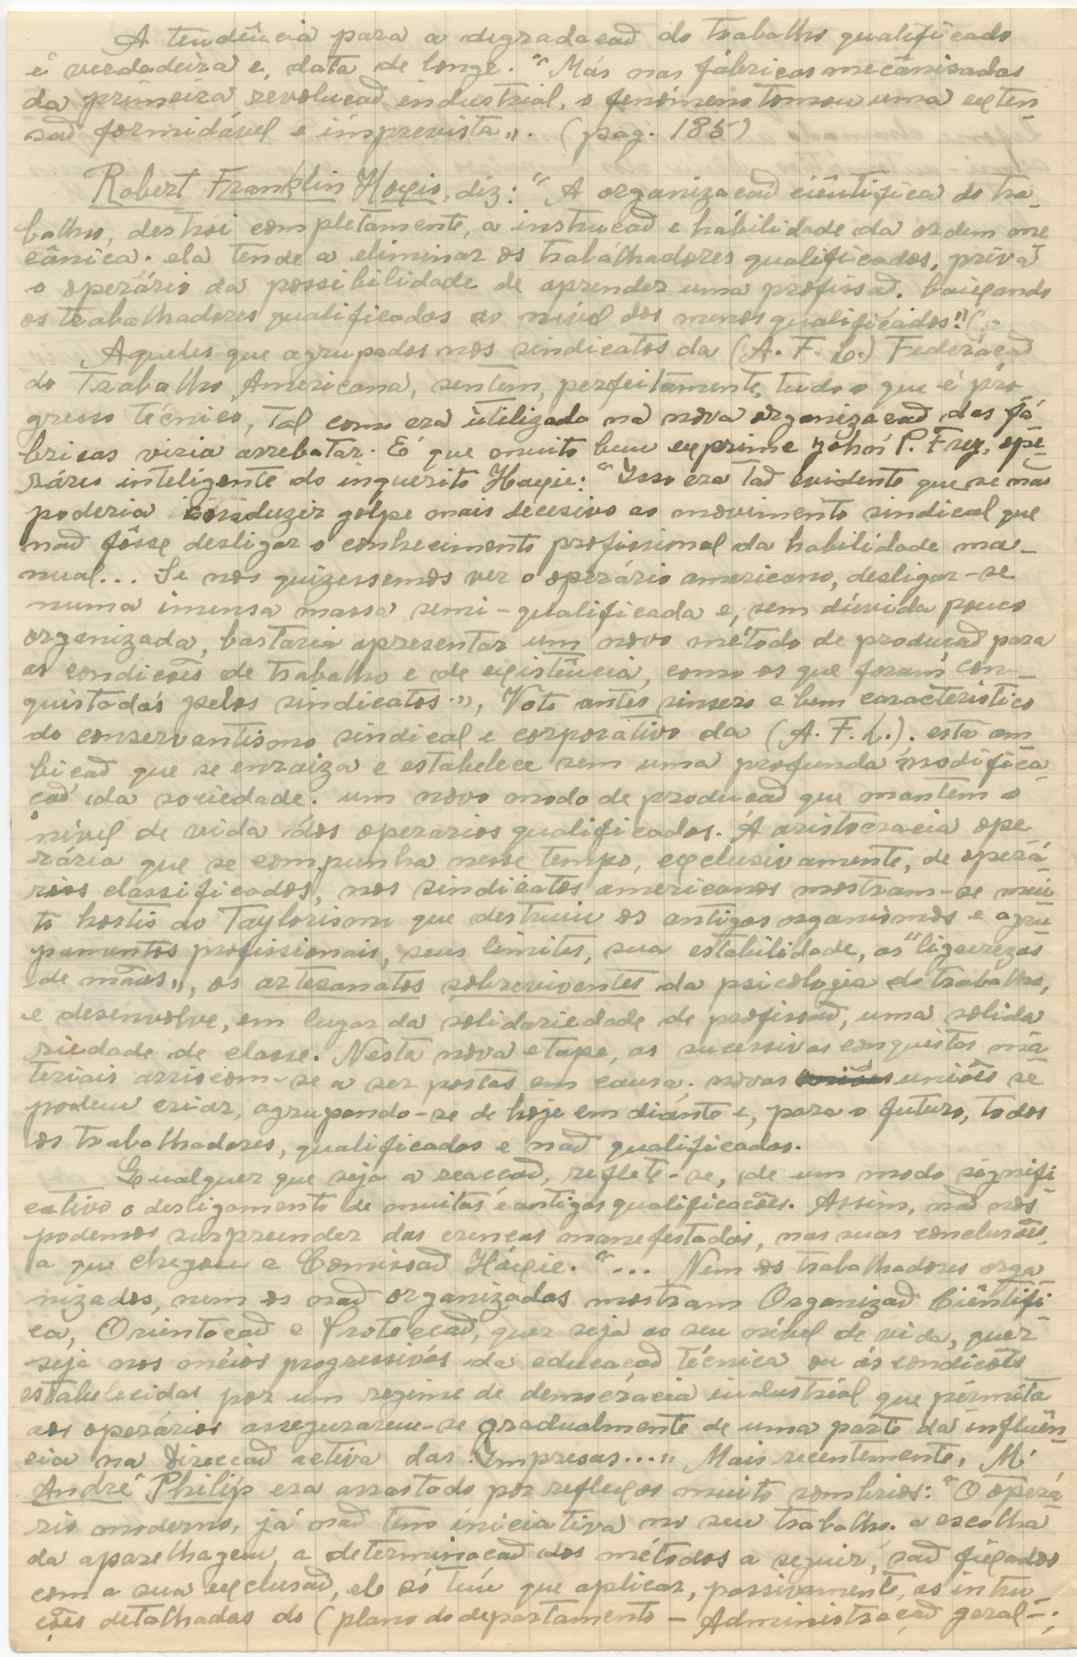 A tendência para a degradaçaõ do trabalho qualificado
é verdadeira e, data de longe. "Más nas fábricas mecânisadas
da primeira revoluçaõ industrial, o fenómeno tomou uma exten-
saõ formidável e imprevista,,. (pag. 185)
Robert Franklin Hoxie, diz: "A organizaçaõ ciêntifica do tra-
balho, destroi completamente, a instruçaõ e hábilidade da ordem me
cânica. ela tende a eliminar os trabálhadores qualificados, priva
o operário da possibilidade de aprender uma profissaõ. baixando
os trabalhadores qualificados ao nível dos menos qualificados!! (..
Aqueles que agrupados nos sindicatos da (A. F. L.) Federaçaõ
do Trabalho Américana, sentem, perfeitamente, tudo o que é pro
gresso técnico, tal como era utilizado na nova organizaçaõ das fá
bricas viria arrebatar. É o que muito bem exprime John P. Frey, ope-
rário inteligente do inquerito Hoxie: "Isso era taõ evidente que se naõ
poderia conduzir golpe mais decesivo ao movimento sindical que
naõ fôsse desligar o conhecimento profissional da habilidade ma-
nual... Se nós quizessemos ver o operário americano, desligar-se
numa imensa massa semi-qualificada e, sem dúvida pouco
organizada, bastaria apresentar um novo método de produçaõ para
as condiçoẽs de trabalho e de existência, como os que foram con-
quistadas pelos sindicatos.,,, Voto antes sinsero e bem caracteristico
do conservantismo sindical e corporativo da (A. F. L.). esta am
biçaõ que se enraiza e estabelece sem uma profunda modifica
çaõ da sociedade. um novo modo de produçaõ que mantem o
nível de vida dos operarios qualificados. A aristocracia ope
rária que se compunha nesse tempo, exclusivamente, de operá
rios classificados, nos sindicatos americanos mostram-se mui
to hostis ao Taylorismo que destruiu os antigos organismos e agru
pamentos profissionais, seus limites, sua estabilidade, as "ligeirezas
de mãos,,, os artesanatos sobreviventes da psicologia do trabalho,
e desenvolve, em lugar da solidariedade de profissaõ, uma solida
riedade de classe. Nesta nova etape, as sucessivas conquistas ma
teriais arriscam-se a ser postas em causa. novas unioẽs se
podem criar, agrupando-se de hoje em diante e, para o futuro, todos
os trabalhadores, qualificados e naõ qualificados.
Qualquer que seja a reacçaõ, reflete-se, de um modo signifi
cativo o desligamento de muitas e antigas qualificaçoẽs. Assim, naõ nos
podemos surpreender das crenças manefestadas, nas suas conclusoẽs
a que chegou a Comissaõ Hoxie. "... Nem os trabalhadores orga
nizados, nem os naõ organizados mostram Organizaõ Ciêntifi
ca, Orientaçaõ e Protecçaõ, quer seja ao seu nível de vida, quer
seja nos meios progressivos da educaçaõ técnica ou ás condiçoẽs
estabelecidas por um regime de democracia industrial que permita
aos operários assegurarem-se gradualmente de uma parte da influên
cia na Direcçaõ activa das Empresas....,, Mais recentemente, M.
André Philip era arrastado por reflexos muito sombrios: "O operá
rio moderno, já naõ tem iniciativa no seu trabalho. a escolha
da aparelhagem, a determinaçaõ dos métodos a seguir, saõ fixados
com a sua exclusaõ, ele só têm que aplicar, passivamente, as intru
çoẽs detalhadas do (plano do departamento - Administraçaõ geral-;